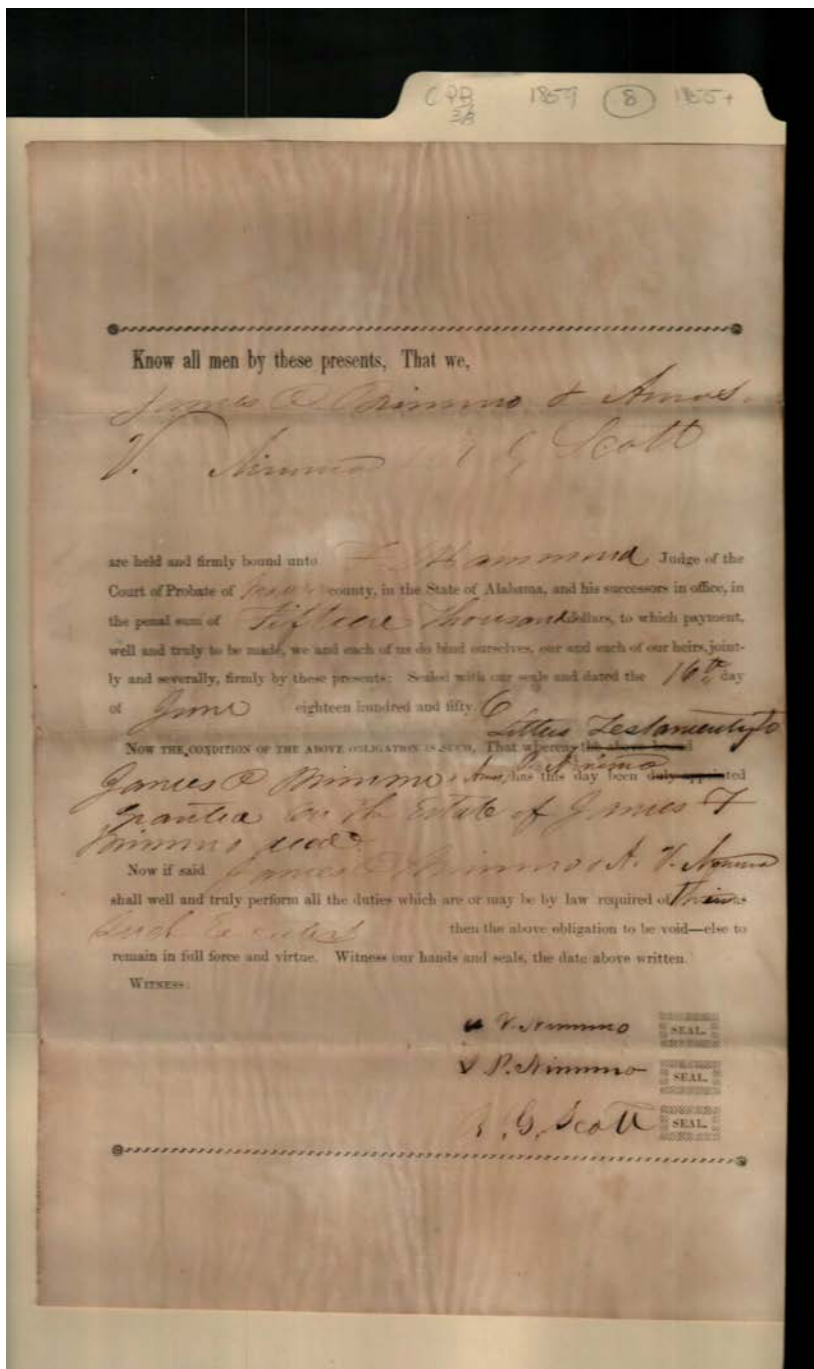 CPB 1857 8 1855+
Know all men by these presents, That we,
James P Nimmo & Amos
V. Nimmo G Scott
are held and firmly bound unto F Hammond Judge of the
Court of Probate of county, in the State of Alabama, and his successors in office, in
the penal sum of Fifteen Thousand dollars, to which payment,
well and truly to be made, we and each of us do bind ourselves, our and each of our heirs, joint-
ly and severally, firmly by these presents: Sealed with our seals and dated the 16th day
of June eighteen hundred and fifty 6
Letters Testamenty to
Now the condition of the above obligation is such, That whereas the above bound
James P Nimmo & Amos V Nimmo has this day been duly appointed
granted on the Estate of James T
Nimmo decd
Now if said James P Nimmo & A. V. Nimmo
shall well and truly perform all the duties which are or may be by law required of them as
Such Executors then the above obligation to be void—else to
remain in full force and virtue. Witness our hands and seals, the date above written.
Witness:
V. Nimmo SEAL.
J P. Nimmo SEAL.
G. Scott SEAL.